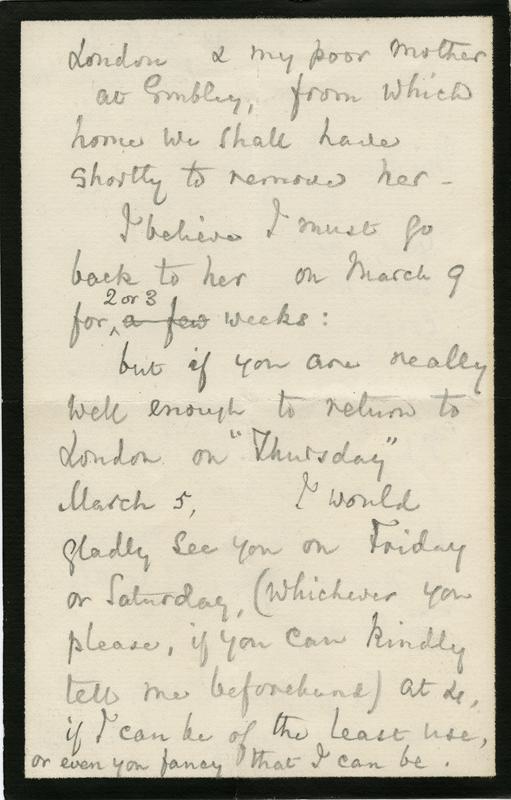 London & my poor Mother
at Embley, from which
home we shall have
shortly to remove her -
I believe I must go
back to her on March 9
2 or 3
for ^ a few weeks:
but if you are really
well enough to return to
London on "Thursday"
March 5, I would
gladly see you on Friday
or Saturday, (whichever you
please, if you can kindly
tell me beforehand) at 4,
if I can be of the least use,
or even you fancy that I can be.